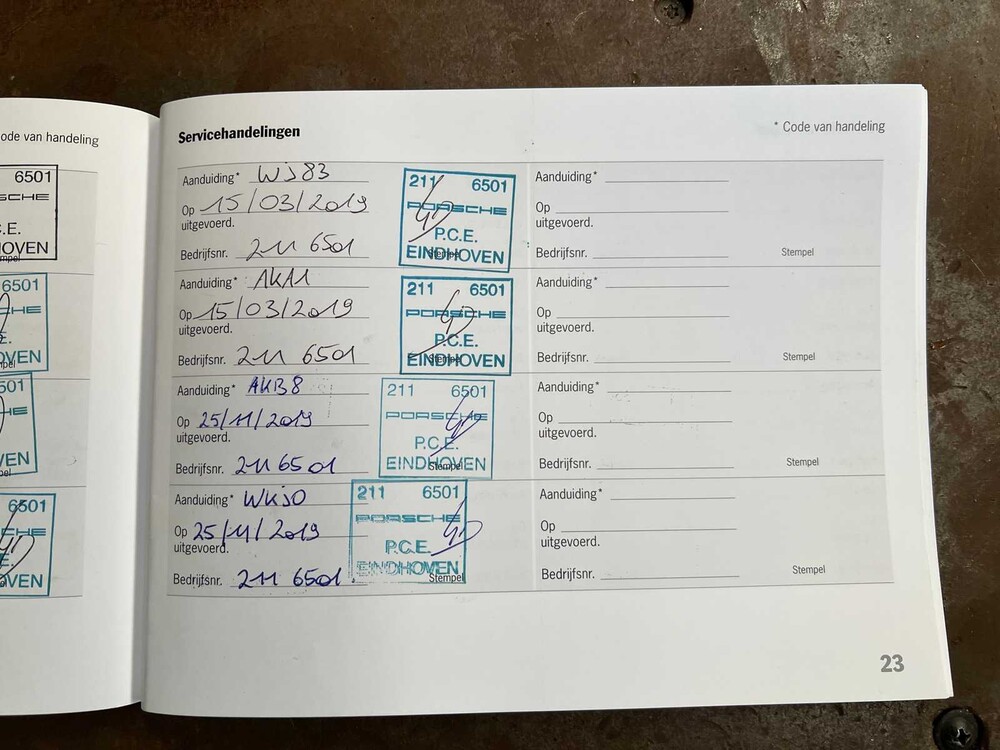 ode van handeling
6501
SCHE
C.E.
HOVEN
6501
HE
E.
OVEN
501
HE
VEN
6501
CHE
E.
OVEN
Servicehandelingen
* Code van handeling
Aanduiding* WJ83
Op 15/03/2019
uitgevoerd.
Bedrijfsnr. 211 6501
211 6501
PORSCHE
P.C.E.
EINDHOVEN
Stempel
Aanduiding* AKA1
Op 15/03/2019
uitgevoerd.
Bedrijfsnr. 211 6501
211 6501
PORSCHE
P.C.E.
EINDHOVEN
Stempel
Aanduiding* AKB8
Op 25/11/2019
uitgevoerd.
Bedrijfsnr. 211 6501
211 6501
PORSCHE
P.C.E.
EINDHOVEN
Stempel
Aanduiding* WKJ0
Op 25/11/2019
uitgevoerd.
Bedrijfsnr. 211 6501
211 6501
PORSCHE
P.C.E.
EINDHOVEN
Stempel
Aanduiding*
Op
uitgevoerd.
Bedrijfsnr.
Stempel
Aanduiding*
Op
uitgevoerd.
Bedrijfsnr.
Stempel
Aanduiding*
Op
uitgevoerd.
Bedrijfsnr.
Stempel
Aanduiding*
Op
uitgevoerd.
Bedrijfsnr.
Stempel
23